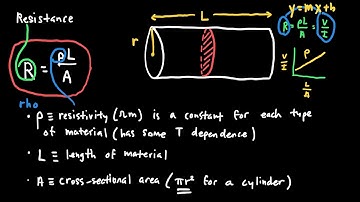 Resistance
R = ρL/A
rho
L
r
y=mx+b
R = ρL/A = V/I
V/I
ρ
L/A
• ρ ≡ resistivity (Ωm) is a constant for each type
of material (has some T dependence)
• L ≡ length of material
• A ≡ cross-sectional area (πr² for a cylinder)